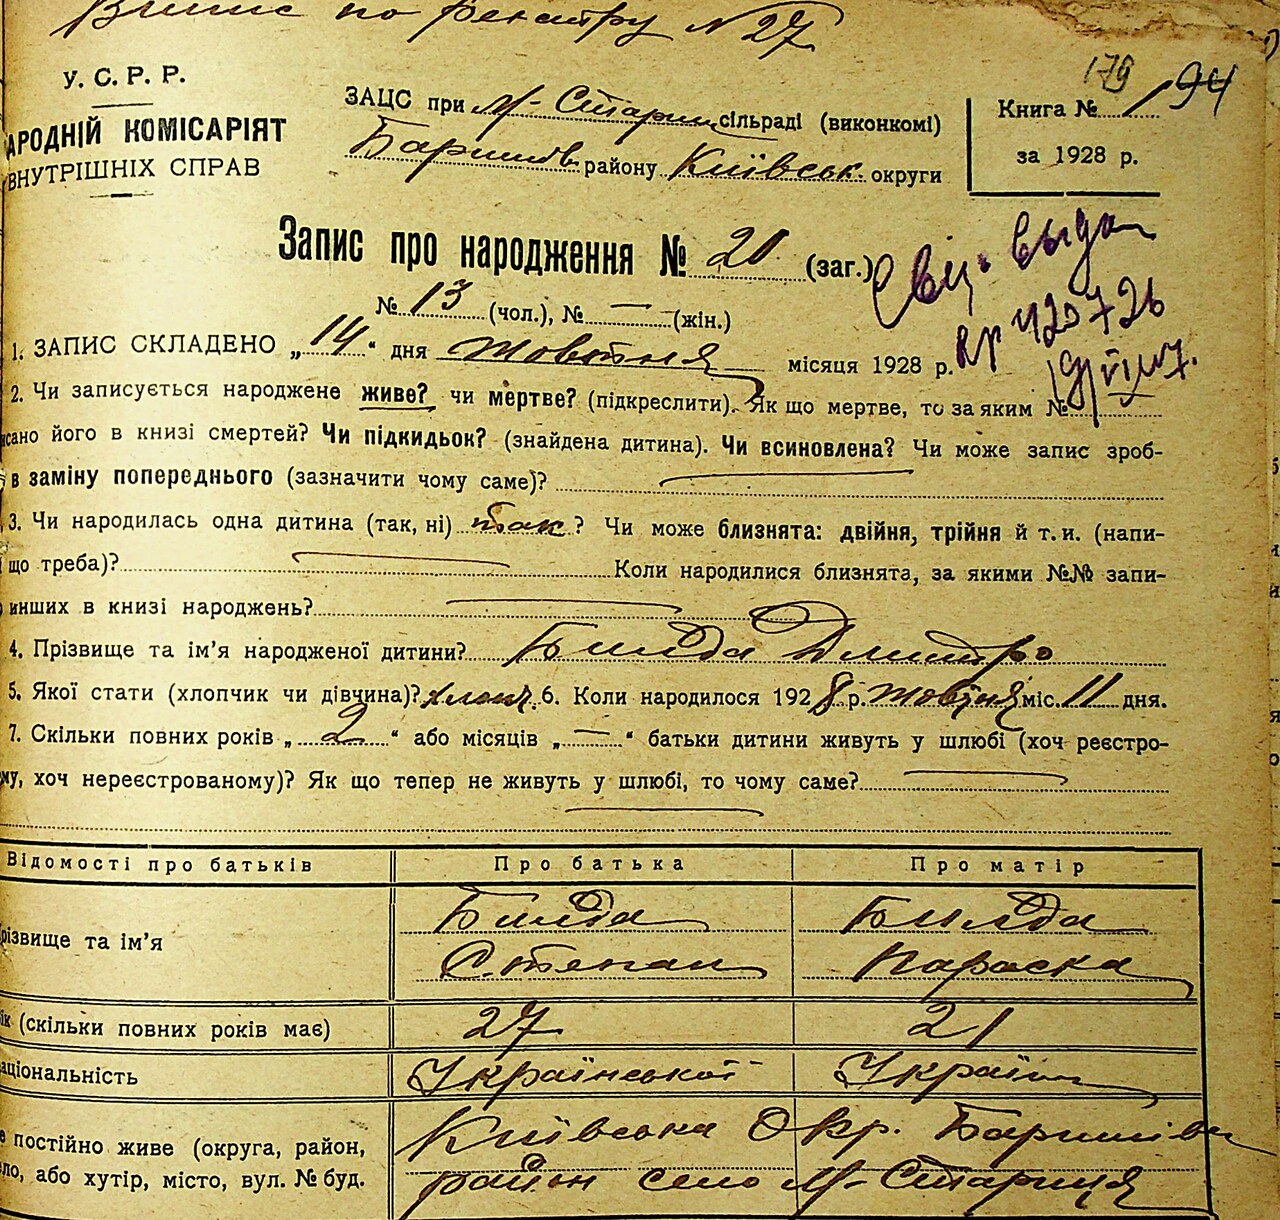 Випис по реєстру № 27
179
194
У. С. Р. Р.
АРОДНІЙ КОМІСАРІЯТ
ВНУТРІШНІХ СПРАВ
ЗАЦС при М-Стариц сільраді (виконкомі)
Баришів району Київськ. округи
Книга № 1
за 1928 р.
Запис про народження № 21 (заг.)
№ 13 (чол.), № — (жін.)
выдан
420726
1. ЗАПИС СКЛАДЕНО „14“ дня Жовтня місяця 1928 р.
2. Чи записується народжене живе? чи мертве? (підкреслити). Як що мертве, то за яким №
исано його в книзі смертей? Чи підкидьок? (знайдена дитина). Чи всиновлена? Чи може запис зроб-
в заміну попереднього (зазначити чому саме)?
3. Чи народилась одна дитина (так, ні) так? Чи може близнята: двійня, трійня й т. и. (напи-
що треба)? Коли народилися близнята, за якими №№ запи-
инших в книзі народжень?
4. Прізвище та ім’я народженої дитини? Билда Дмитро
5. Якої стати (хлопчик чи дівчина)? хлопч. 6. Коли народилося 1928 р. Жовтня міс. 11 дня.
7. Скільки повних років „2“ або місяців „—“ батьки дитини живуть у шлюбі (хоч реєстро-
му, хоч нереєстрованому)? Як що тепер не живуть у шлюбі, то чому саме?
Відомості про батьків Про батька Про матір
різвище та ім’я Билда Степан Билда Параска
ік (скільки повних років має) 27 21
аціональність Української Україн
е постійно живе (округа, район, Київська Окр. Баришівс
ло, або хутір, місто, вул. № буд. район село М-Стариця